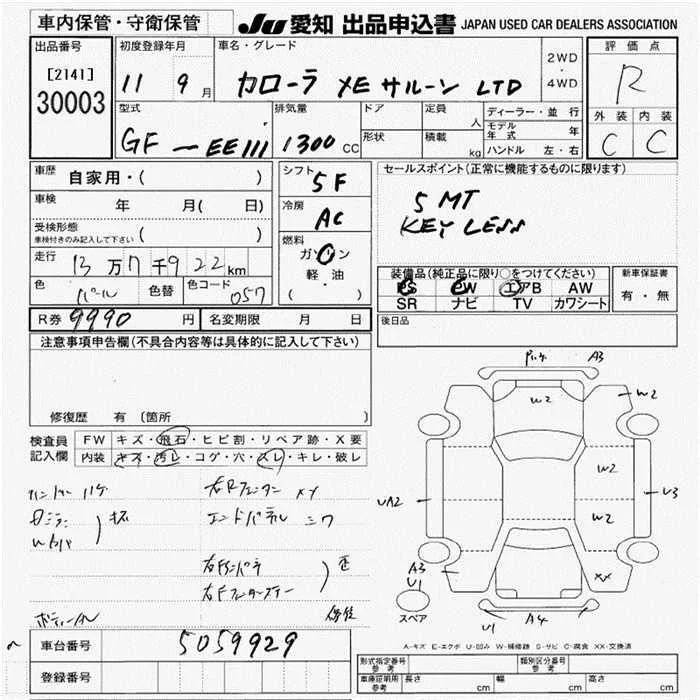 車内保管・守衛保管
JU 愛知 出品申込書 JAPAN USED CAR DEALERS ASSOCIATION
出品番号
[2141]
30003
初度登録年月
11 9月
車名・グレード
カローラ XEサルーン LTD
2WD
・
4WD
評価点
R
外装 内装
C C
型式
GF-EE111
排気量
1300cc
ドア
形状
定員
人
積載
kg
ディーラー・並行
モデル年式 年
ハンドル 左・右
車歴
自家用・( )
車検 年 月( 日)
受検形態
車検付きのみ記入して下さい ( )
走行 13万7千922km
色 パール 色替 色コード 057
シフト
5F
冷房
AC
燃料
ガソリン
軽・油
( ・ )
セールスポイント(正常に機能するものに限ります)
5MT
KEYLESS
装備品(純正品に限り○をつけてください)
PS PW エアB AW
SR ナビ TV カワシート
新車保証書
有・無
R券 9990円 名変期限 月 日
後日品
注意事項申告欄(不具合内容等は具体的に記入して下さい)
修復歴 有 〔箇所
検査員
記入欄
FW キズ・飛石・ヒビ割・リペア跡・X要
内装 キズ・汚レ・コゲ・穴・スレ・キレ・破レ
ハンドル ハゲ
右Rフェンダー XX
キズ
エンドパネル シワ
歪
修復
A3
W2
W2
W2
UA2
U3
W2
A3
U1
XX
スペア
U1
A4
A-キズ E-エクボ U-凹み W-補修跡 S-サビ C-腐食 XX-交換済
車台番号 5059929
登録番号
形式指定番号
参考
類別区分番号
参考
車庫証明用
参考
長さ cm 幅 cm 高さ cm